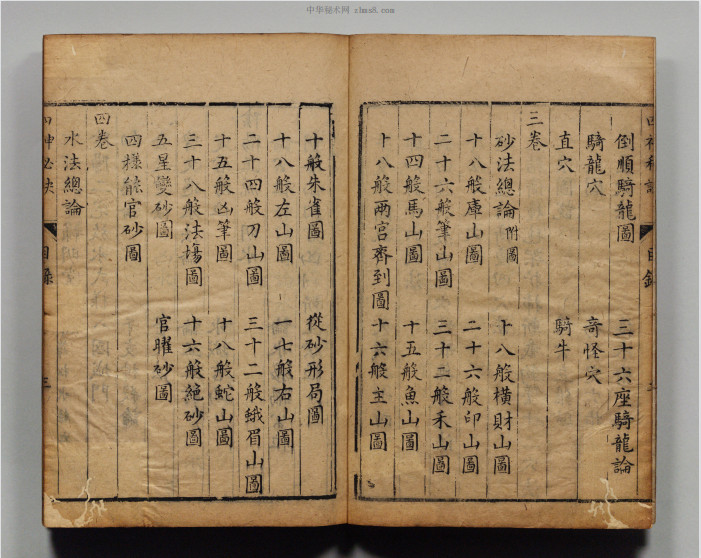 中华秘术网 zhms8.com
倒順騎龍圖 三十六座騎龍論
騎龍穴 奇怪穴
直穴 騎牛
三卷
砂法總論 附圖 十八般橫財山圖
十八般庫山圖 二十六般印山圖
二十六般筆山圖 三十二般禾山圖
十四般馬山圖 十五般魚山圖
十八般兩宮齊到圖 十六般主山圖
十般朱雀圖 從砂形局圖
十八般左山圖 一七般右山圖
二十四般刀山圖 三十二般蛾眉山圖
十五般凶筆圖 十八般蛇山圖
三十八般法場圖 十六般絕砂圖
五星變砂圖 官曜砂圖
四樣能官砂圖
四卷
水法總論
目錄
三